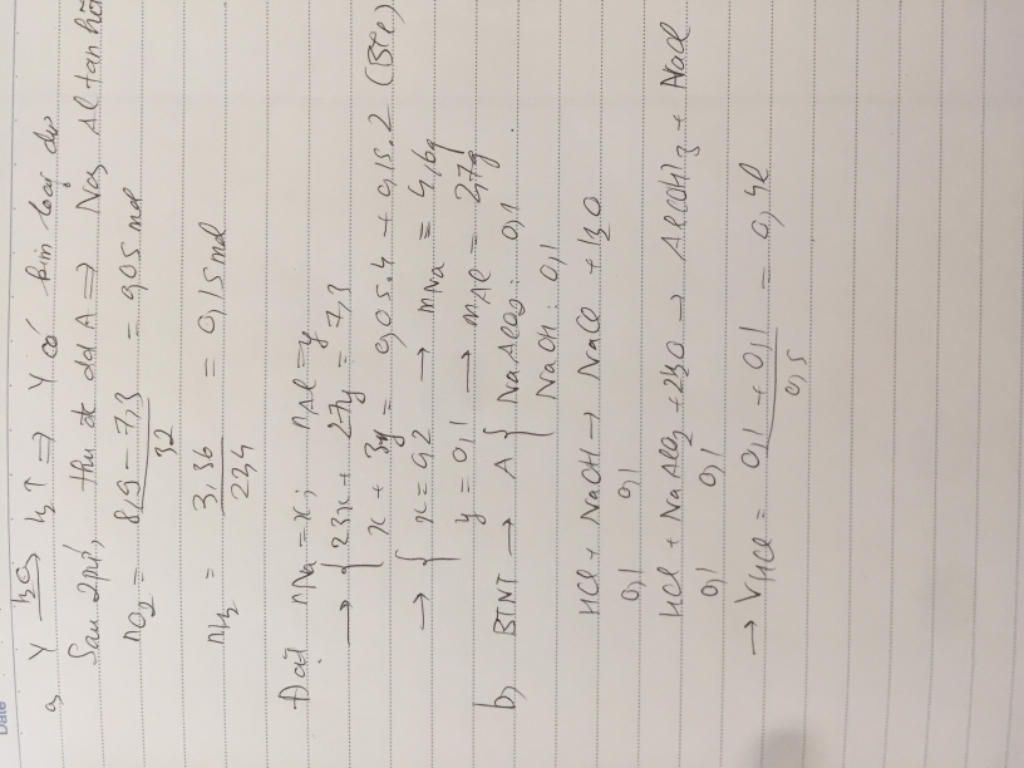 Date
a, Y H₂O→ H₂↑ ⇒ Y có kim loại dư
Sau 2pứ, thu đc dd A ⇒ Na, Al tan
nO₂ = 8,9 - 7,3 / 32 = 0,05 mol
nH₂ = 3,36 / 22,4 = 0,15 mol
Đặt nNa = x; nAl = y
→ { 23x + 27y = 7,3
x + 3y = 0,05.4 + 0,15.2 (BTe)
→ { x = 0,2 → mNa = 4,6g
y = 0,1 → mAl = 2,7g
b, BTNT → A { NaAlO₂: 0,1
NaOH: 0,1
HCl + NaOH → NaCl + H₂O
0,1 0,1
HCl + NaAlO₂ + H₂O → Al(OH)₃ + NaCl
0,1 0,1
→ VHCl = 0,1 + 0,1 / 0,5 = 0,4l